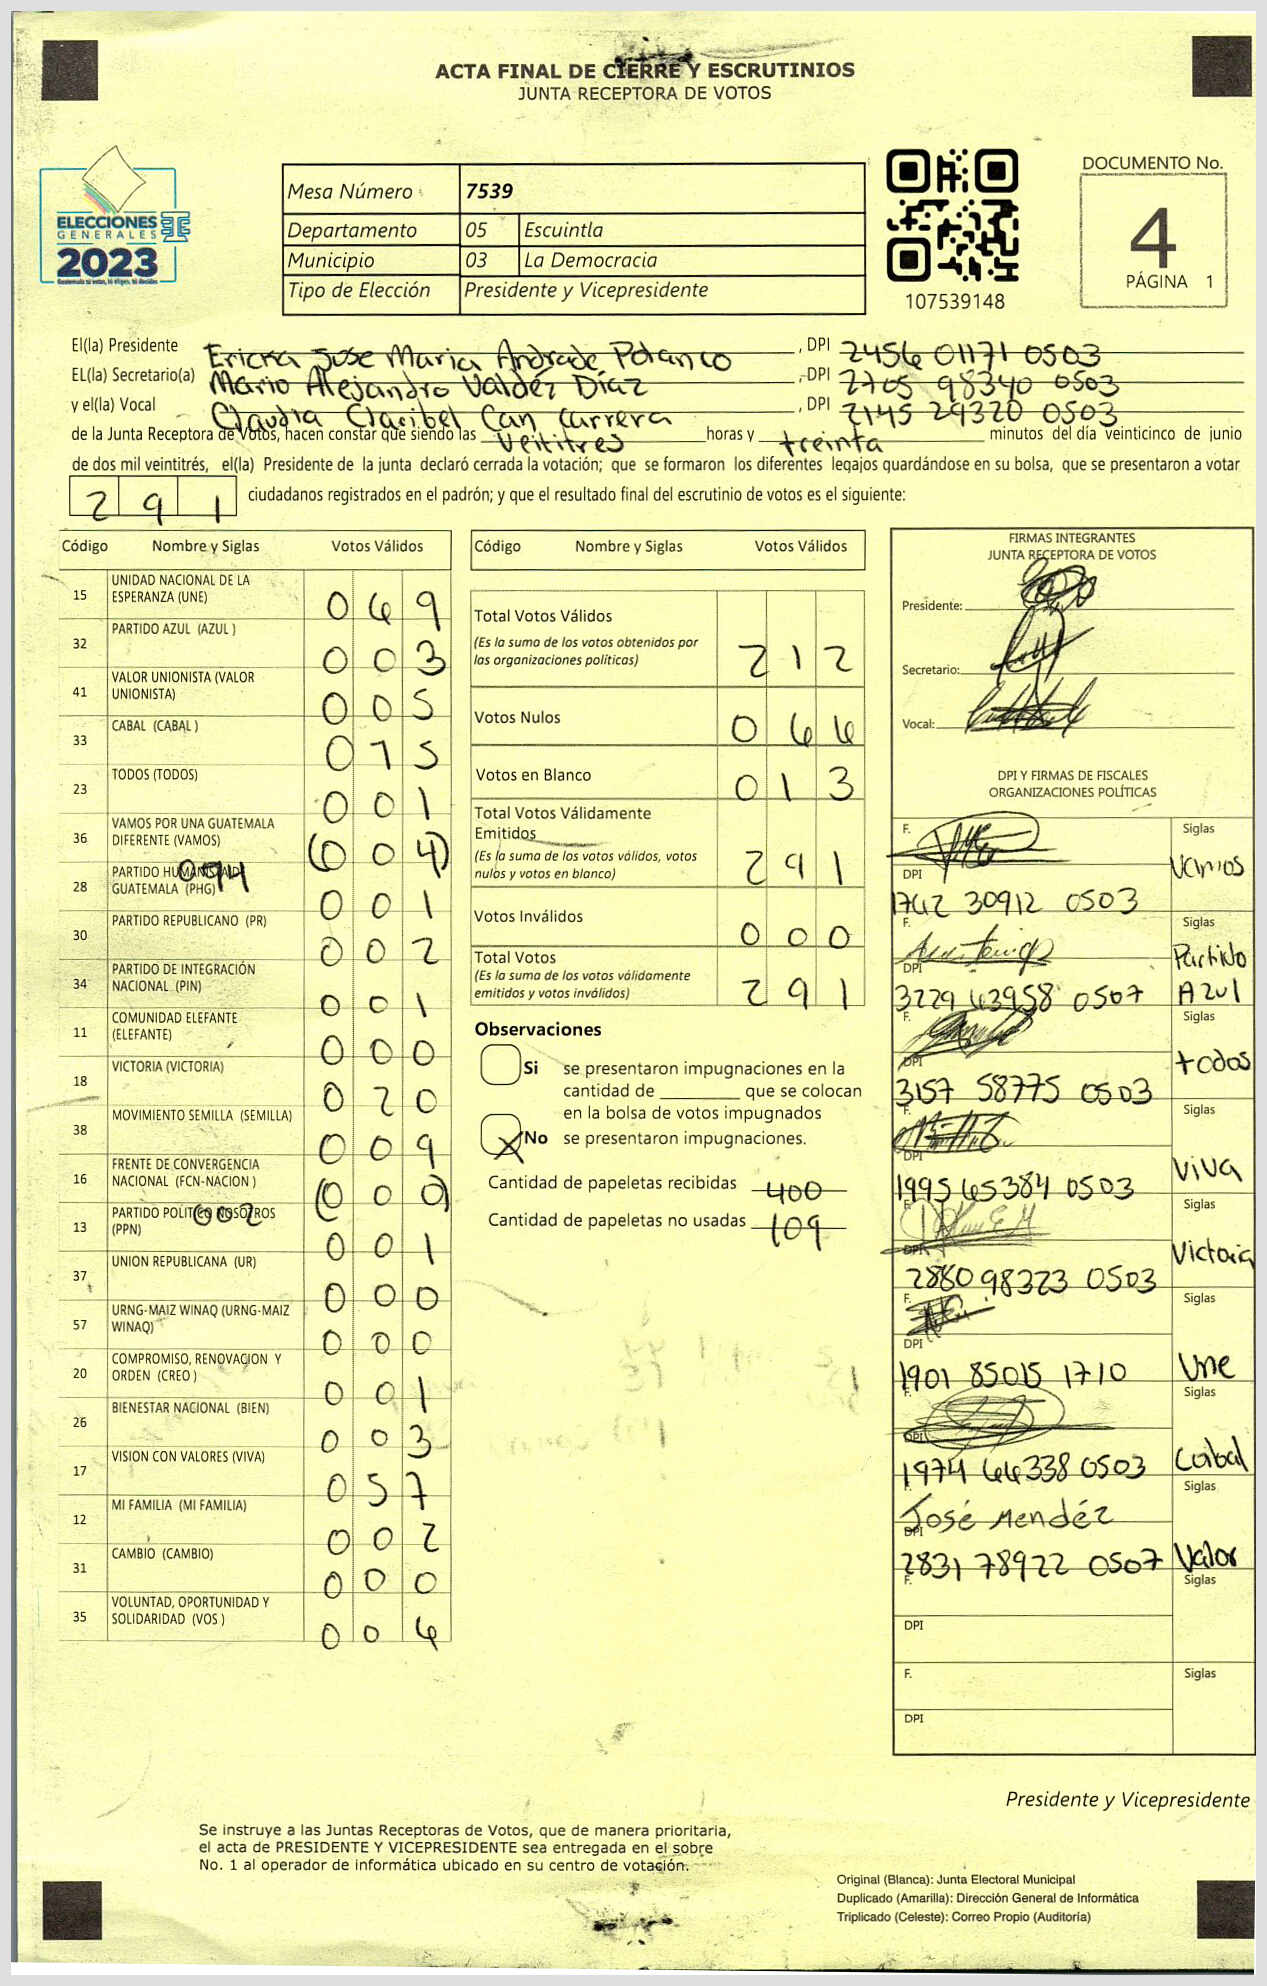 ACTA FINAL DE CIERRE Y ESCRUTINIOS
JUNTA RECEPTORA DE VOTOS
ELECCIONES
GENERALES
2023
Mesa Número 7539
Departamento 05 Escuintla
Municipio 03 La Democracia
Tipo de Elección Presidente y Vicepresidente
107539148
DOCUMENTO No.
4
PÁGINA 1
El(la) Presidente Ericka Jose Maria Andrade Polanco, DPI 2456 01171 0503
EL(la) Secretario(a) Mario Alejandro Valdéz Díaz, DPI 2705 98340 0503
y el(la) Vocal Claudia Claribel Can Carrera, DPI 2145 29320 0503
de la Junta Receptora de Votos, hacen constar que siendo las Veititres horas y treinta minutos del día veinticinco de junio
de dos mil veintitrés, el(la) Presidente de la junta declaró cerrada la votación; que se formaron los diferentes legajos guardándose en su bolsa, que se presentaron a votar
291 ciudadanos registrados en el padrón; y que el resultado final del escrutinio de votos es el siguiente:
Código Nombre y Siglas Votos Válidos
15 UNIDAD NACIONAL DE LA ESPERANZA (UNE) 069
32 PARTIDO AZUL (AZUL ) 003
41 VALOR UNIONISTA (VALOR UNIONISTA) 005
33 CABAL (CABAL ) 015
23 TODOS (TODOS) 001
36 VAMOS POR UNA GUATEMALA DIFERENTE (VAMOS) (004)
094
28 PARTIDO HUMANISTA DE GUATEMALA (PHG) 001
30 PARTIDO REPUBLICANO (PR) 002
34 PARTIDO DE INTEGRACIÓN NACIONAL (PIN) 001
11 COMUNIDAD ELEFANTE (ELEFANTE) 000
18 VICTORIA (VICTORIA) 020
38 MOVIMIENTO SEMILLA (SEMILLA) 009
16 FRENTE DE CONVERGENCIA NACIONAL (FCN-NACION ) (000)
002
13 PARTIDO POLITICO NOSOTROS (PPN) 001
37 UNION REPUBLICANA (UR) 000
57 URNG-MAIZ WINAQ (URNG-MAIZ WINAQ) 000
20 COMPROMISO, RENOVACION Y ORDEN (CREO ) 001
26 BIENESTAR NACIONAL (BIEN) 003
17 VISION CON VALORES (VIVA) 057
12 MI FAMILIA (MI FAMILIA) 002
31 CAMBIO (CAMBIO) 000
35 VOLUNTAD, OPORTUNIDAD Y SOLIDARIDAD (VOS ) 004
Código Nombre y Siglas Votos Válidos
Total Votos Válidos 212
(Es la suma de los votos obtenidos por
las organizaciones políticas)
Votos Nulos 066
Votos en Blanco 013
Total Votos Válidamente
Emitidos 291
(Es la suma de los votos válidos, votos
nulos y votos en blanco)
Votos Inválidos 000
Total Votos 291
(Es la suma de los votos válidamente
emitidos y votos inválidos)
Observaciones
Si se presentaron impugnaciones en la
cantidad de ________ que se colocan
en la bolsa de votos impugnados
X No se presentaron impugnaciones.
Cantidad de papeletas recibidas 400
Cantidad de papeletas no usadas 109
FIRMAS INTEGRANTES
JUNTA RECEPTORA DE VOTOS
Presidente:
Secretario:
Vocal:
DPI Y FIRMAS DE FISCALES
ORGANIZACIONES POLÍTICAS
F. Siglas
DPI 1742 30912 0503 Vamos
F. Siglas
DPI 3229 63958 0507 Partido Azul
F. Siglas
DPI 3157 58775 0503 todos
F. Siglas
DPI 1995 65384 0503 Viva
F. Siglas
DPI 2880 98323 0503 Victoria
F. Siglas
DPI 1901 85015 1710 Une
F. Siglas
DPI 1974 66338 0503 Cabal
F. José Mendéz Siglas
DPI 2831 78922 0507 Valor
F. Siglas
DPI
F. Siglas
DPI
Presidente y Vicepresidente
Se instruye a las Juntas Receptoras de Votos, que de manera prioritaria,
el acta de PRESIDENTE Y VICEPRESIDENTE sea entregada en el sobre
No. 1 al operador de informática ubicado en su centro de votación.
Original (Blanca): Junta Electoral Municipal
Duplicado (Amarilla): Dirección General de Informática
Triplicado (Celeste): Correo Propio (Auditoría)